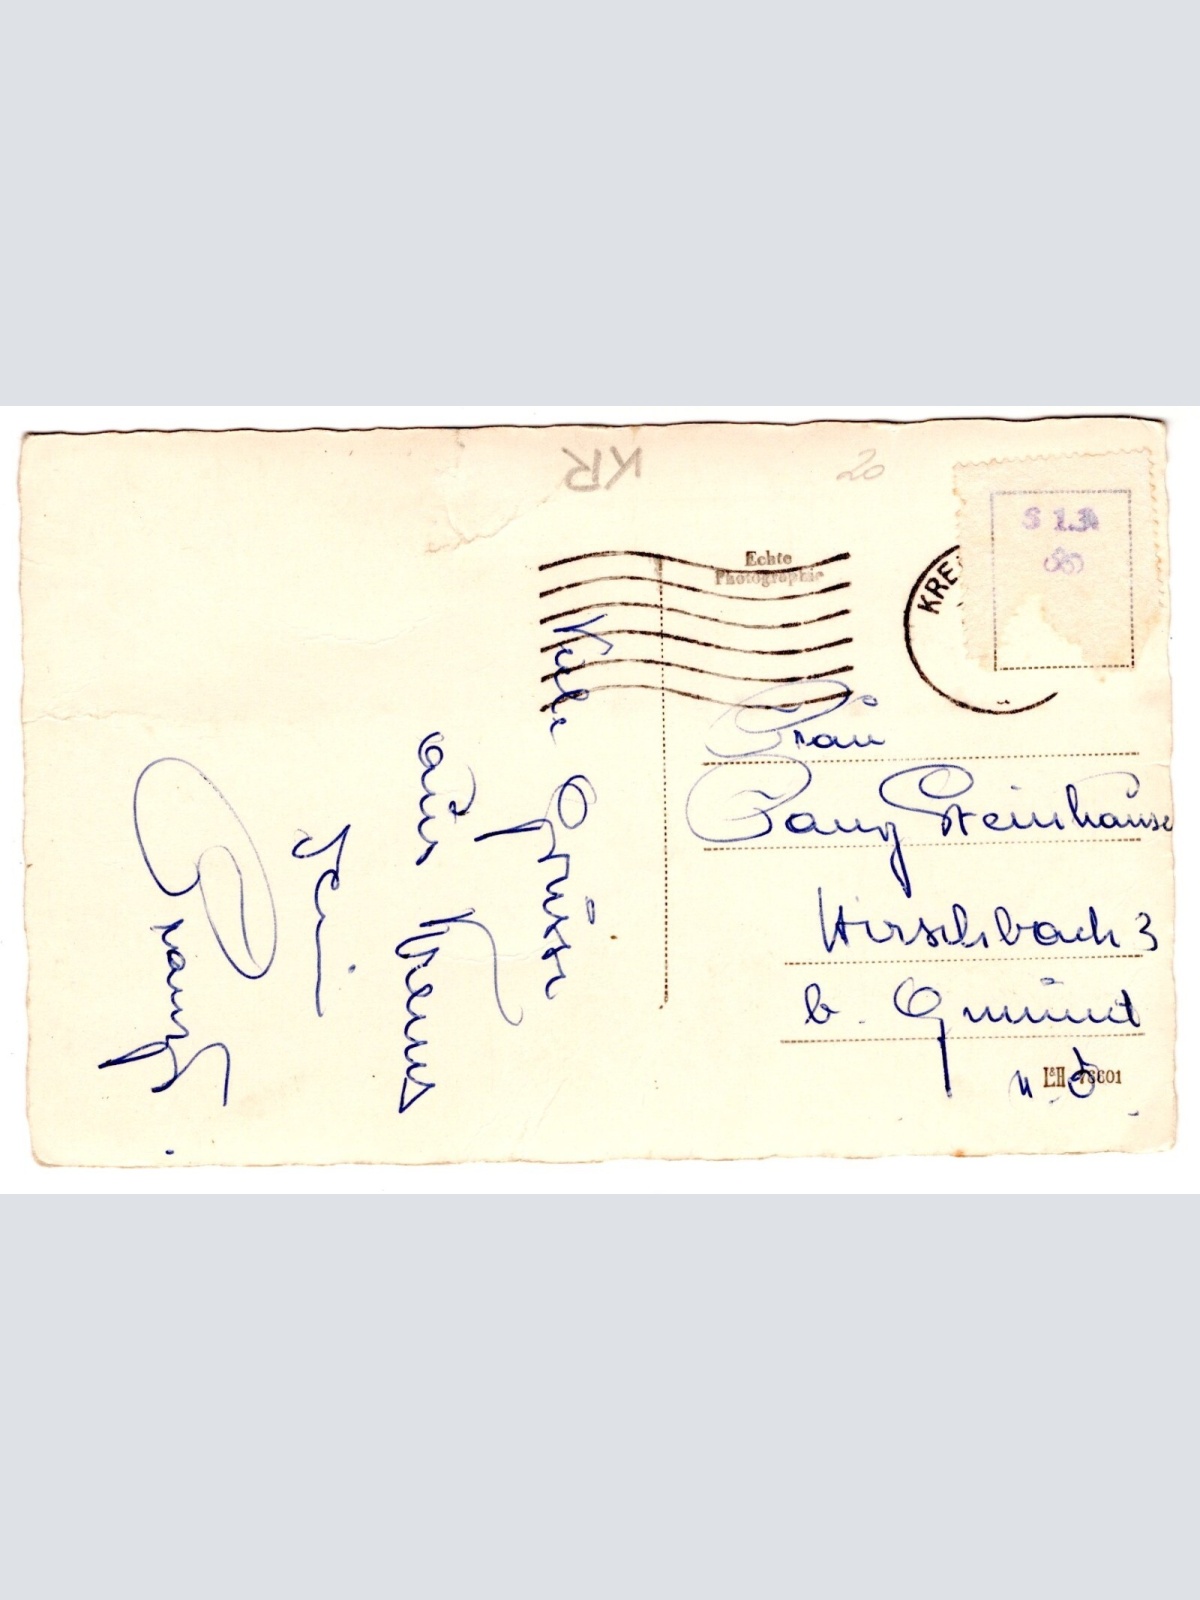 KR
20
S 1.30
Echte
Photographie
KRE
Viele Grüsse
aus Krems
Dein
Franz
Frau
Fanny Steinhauser
Hirschbach 3
b. Gmünd
N.Ö
L&H 78601